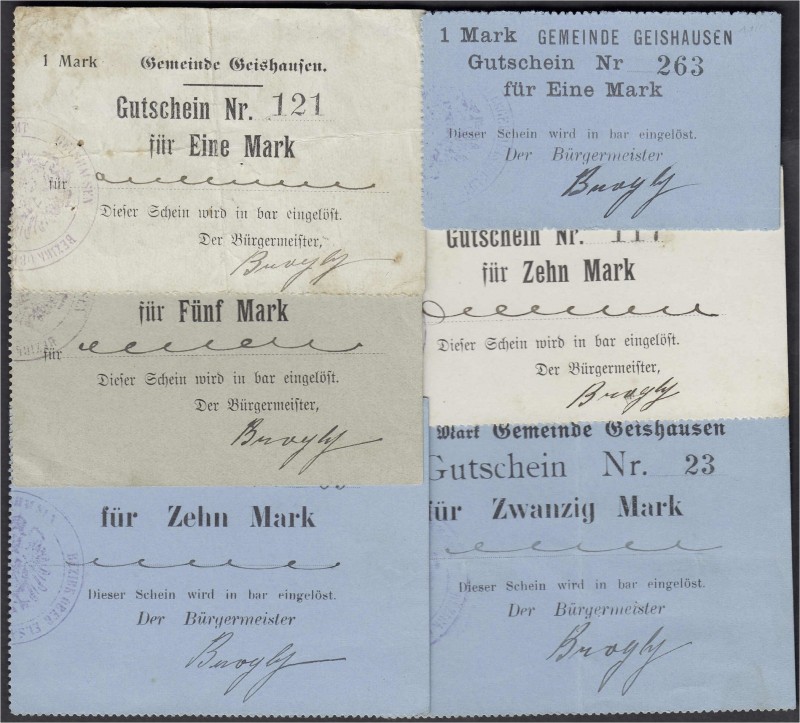 1 Mark Gemeinde Geishausen.
Gutschein Nr. 121
für Eine Mark
für
Dieser Schein wird in bar eingelöst.
Der Bürgermeister,
Brogly
für Fünf Mark
für
Dieser Schein wird in bar eingelöst.
Der Bürgermeister,
Brogly
für Zehn Mark
BEZIRK OBER ELSA
Dieser Schein wird in bar eingelöst.
Der Bürgermeister
Brogly
1 Mark GEMEINDE GEISHAUSEN
Gutschein Nr 263
für Eine Mark
Dieser Schein wird in bar eingelöst.
Der Bürgermeister
Brogly
Gutschein Nr. 117
für Zehn Mark
Dieser Schein wird in bar eingelöst.
Der Bürgermeister,
Brogly
Mark Gemeinde Geishausen
Gutschein Nr. 23
für Zwanzig Mark
Dieser Schein wird in bar eingelöst.
Der Bürgermeister
Brogly